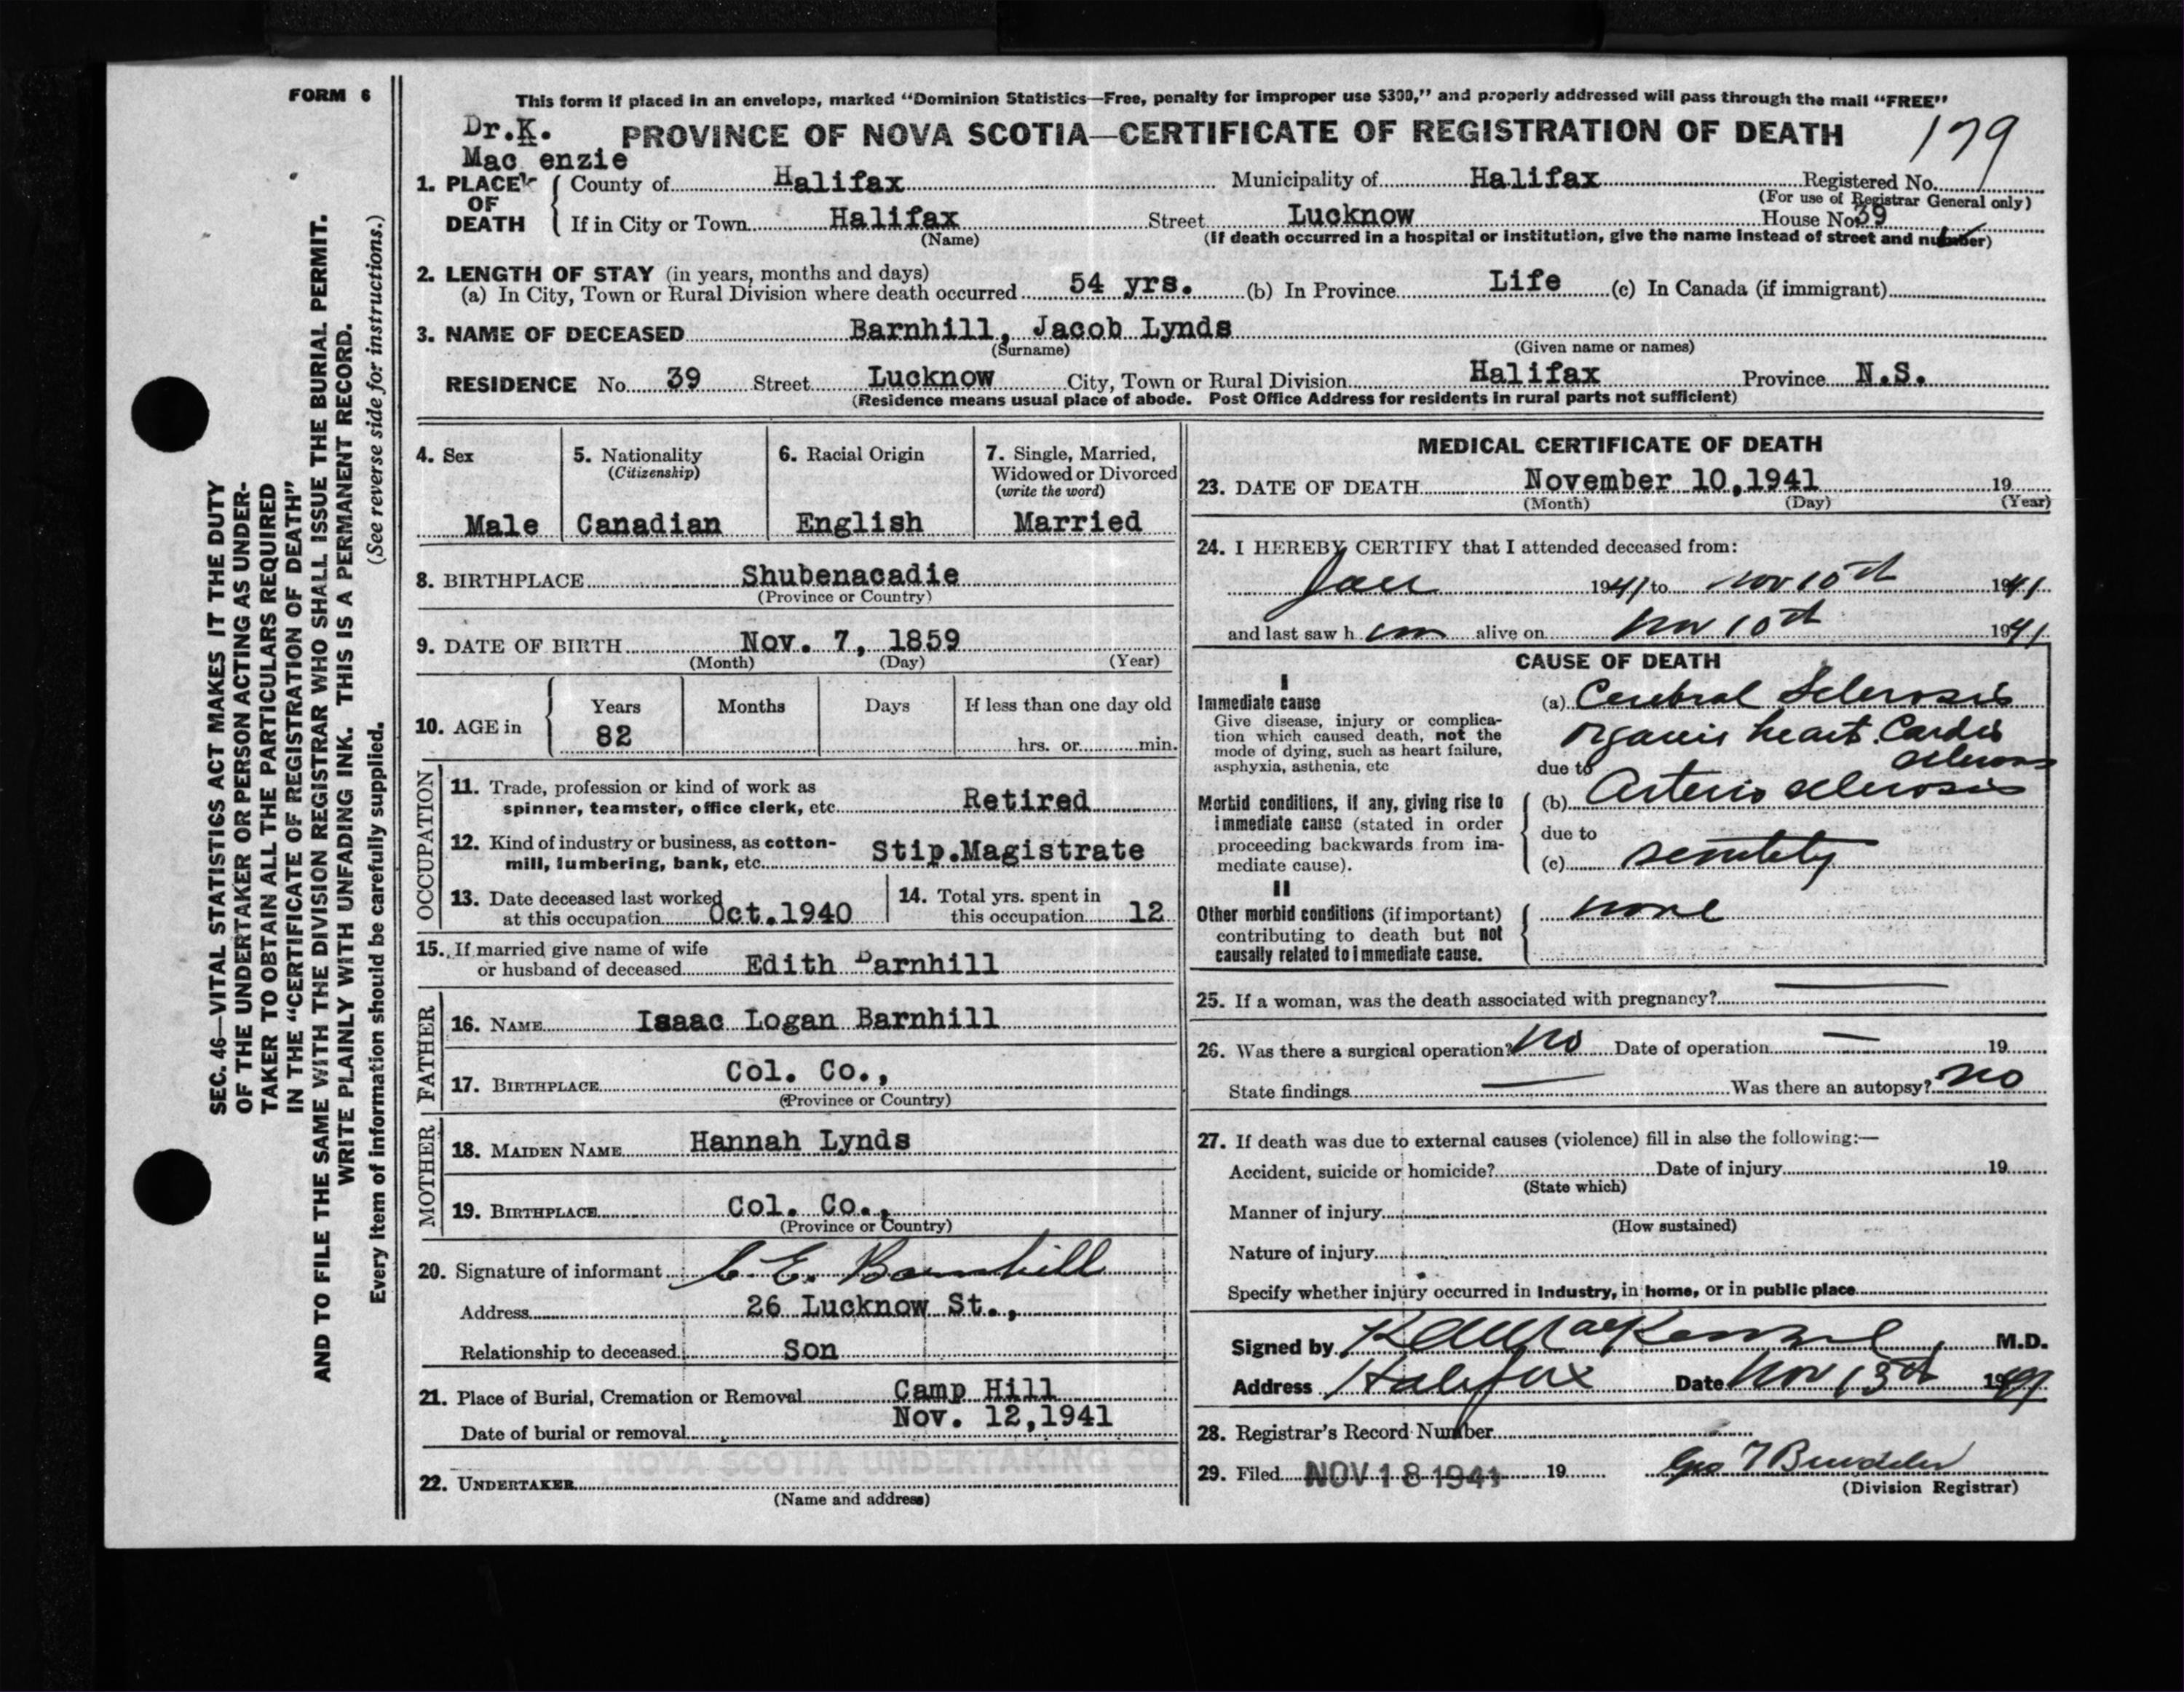 FORM 6
This form if placed in an envelope, marked “Dominion Statistics—Free, penalty for improper use $300,” and properly addressed will pass through the mail “FREE”
Dr.K.
Mac enzie
PROVINCE OF NOVA SCOTIA—CERTIFICATE OF REGISTRATION OF DEATH
179
1. PLACE OF DEATH
County of Halifax Municipality of Halifax Registered No.
(For use of Registrar General only)
If in City or Town Halifax Street Lucknow House No. 39
(Name) (If death occurred in a hospital or institution, give the name instead of street and number)
2. LENGTH OF STAY (in years, months and days)
(a) In City, Town or Rural Division where death occurred 54 yrs. (b) In Province Life (c) In Canada (if immigrant)
3. NAME OF DECEASED Barnhill, Jacob Lynds
(Surname) (Given name or names)
RESIDENCE No. 39 Street Lucknow City, Town or Rural Division Halifax Province N.S.
(Residence means usual place of abode. Post Office Address for residents in rural parts not sufficient)
4. Sex
Male
5. Nationality
(Citizenship)
Canadian
6. Racial Origin
English
7. Single, Married,
Widowed or Divorced
(write the word)
Married
8. BIRTHPLACE Shubenacadie
(Province or Country)
9. DATE OF BIRTH Nov. 7, 1859
(Month) (Day) (Year)
10. AGE in
Years Months Days If less than one day old
82 hrs. or min.
OCCUPATION
11. Trade, profession or kind of work as
spinner, teamster, office clerk, etc. Retired
12. Kind of industry or business, as cotton-
mill, lumbering, bank, etc. Stip.Magistrate
13. Date deceased last worked
at this occupation Oct.1940
14. Total yrs. spent in
this occupation 12
15. If married give name of wife
or husband of deceased Edith Barnhill
FATHER
16. NAME Isaac Logan Barnhill
17. BIRTHPLACE Col. Co.,
(Province or Country)
MOTHER
18. MAIDEN NAME Hannah Lynds
19. BIRTHPLACE Col. Co.,
(Province or Country)
20. Signature of informant C. E. Barnhill
Address 26 Lucknow St.,
Relationship to deceased Son
21. Place of Burial, Cremation or Removal Camp Hill
Date of burial or removal Nov. 12,1941
NOVA SCOTIA UNDERTAKING CO.
22. UNDERTAKER
(Name and address)
MEDICAL CERTIFICATE OF DEATH
23. DATE OF DEATH November 10,1941 19
(Month) (Day) (Year)
24. I HEREBY CERTIFY that I attended deceased from:
Jan 1941 to Nov 10th 1941
and last saw him alive on Nov 10th 1941
CAUSE OF DEATH
I
Immediate cause
Give disease, injury or complica-
tion which caused death, not the
mode of dying, such as heart failure,
asphyxia, asthenia, etc
(a) Cerebral Sclerosis
organic heart. Cardio
sclerosis
due to
Morbid conditions, if any, giving rise to
immediate cause (stated in order
proceeding backwards from im-
mediate cause).
(b) Arterio sclerosis
due to
(c) senility
II
Other morbid conditions (if important)
contributing to death but not
causally related to immediate cause.
none
25. If a woman, was the death associated with pregnancy? —
26. Was there a surgical operation? No Date of operation — 19
State findings — Was there an autopsy? No
27. If death was due to external causes (violence) fill in also the following:—
Accident, suicide or homicide? Date of injury 19
(State which)
Manner of injury
(How sustained)
Nature of injury
Specify whether injury occurred in industry, in home, or in public place
Signed by MacKenzie M.D.
Address Halifax Date Nov 13th 1941
28. Registrar's Record Number
29. Filed NOV 18 1941 19
(Division Registrar)
SEC. 46—VITAL STATISTICS ACT MAKES IT THE DUTY
OF THE UNDERTAKER OR PERSON ACTING AS UNDER-
TAKER TO OBTAIN ALL THE PARTICULARS REQUIRED
IN THE “CERTIFICATE OF REGISTRATION OF DEATH”
AND TO FILE THE SAME WITH THE DIVISION REGISTRAR WHO SHALL ISSUE THE BURIAL PERMIT.
WRITE PLAINLY WITH UNFADING INK. THIS IS A PERMANENT RECORD.
Every item of information should be carefully supplied. (See reverse side for instructions.)